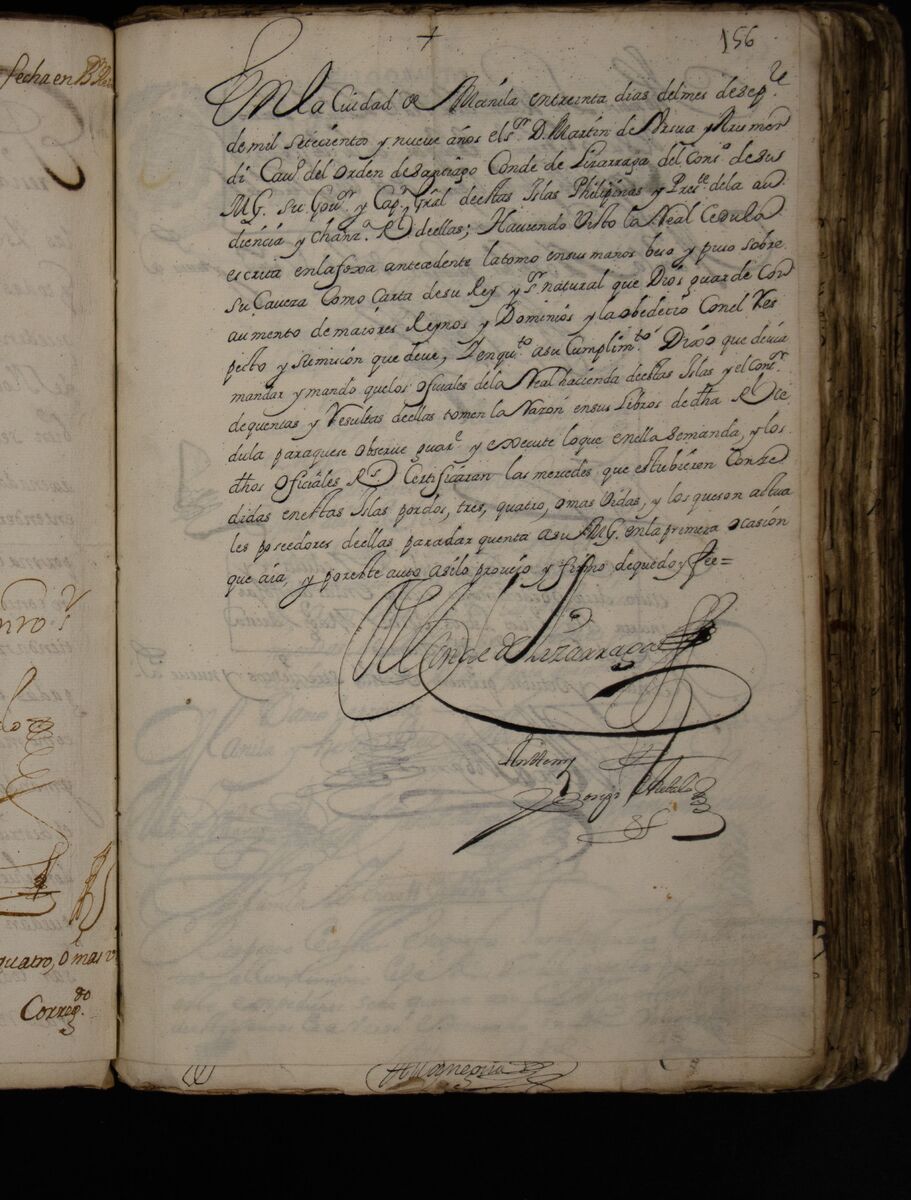 fecha en
156
En la Ciudad de Manila entreinta dias del mes de Sep.re
de mil setecientos y nueve años el s.or D. Martin de Vrsua y Arismen
di Cau.o del orden de santiago Conde de Lizarraga del Cons.o de sus
MG. su Gou.or y Cap.n Gral deestas Islas Philipinas y Pres.te dela au
diencia y chanz.a R.l deellas; Hauiendo Visto la Real Cedula
escrita enlafoxa antecedente latomo ensus manos beso y puso sobre
su Caueza Como Carta desu Rey y s.r natural que Dios guarde Con
aumento demaiores Reynos y Dominios y laobedecio Conel Res
pecto y sumicion que deue, Y enqu.to asu Cumplim.to Dixo que deuia
mandar y mando quelos oficiales dela Real hacienda deestas Islas y el Cont.or
dequentas y Resultas deellas tomen la Razon ensus Libros de dha R.l Ce
dula paraquese observe guar.e y execute loque enella semanda, y los
dhos oficiales R.s Certificaran las mercedes que estubieren Conce
didas enestas Islas pordos, tres, quatro, omas Vidas, y los queson actua
les poseedores deellas paradar quenta asu MG. enla primera ocasion
que aia, y poreste auto asilo proueio y firmo dequedoy fee=
El Conde de Lizarraga
Antemi
quatro, o mas v
Correg.do